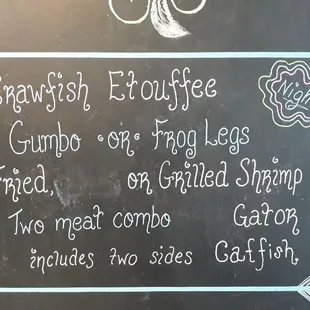 Crawfish Etouffee
Night
Gumbo or Frog Legs
Fried, or Grilled Shrimp
Two meat combo Gator
includes two sides Catfish